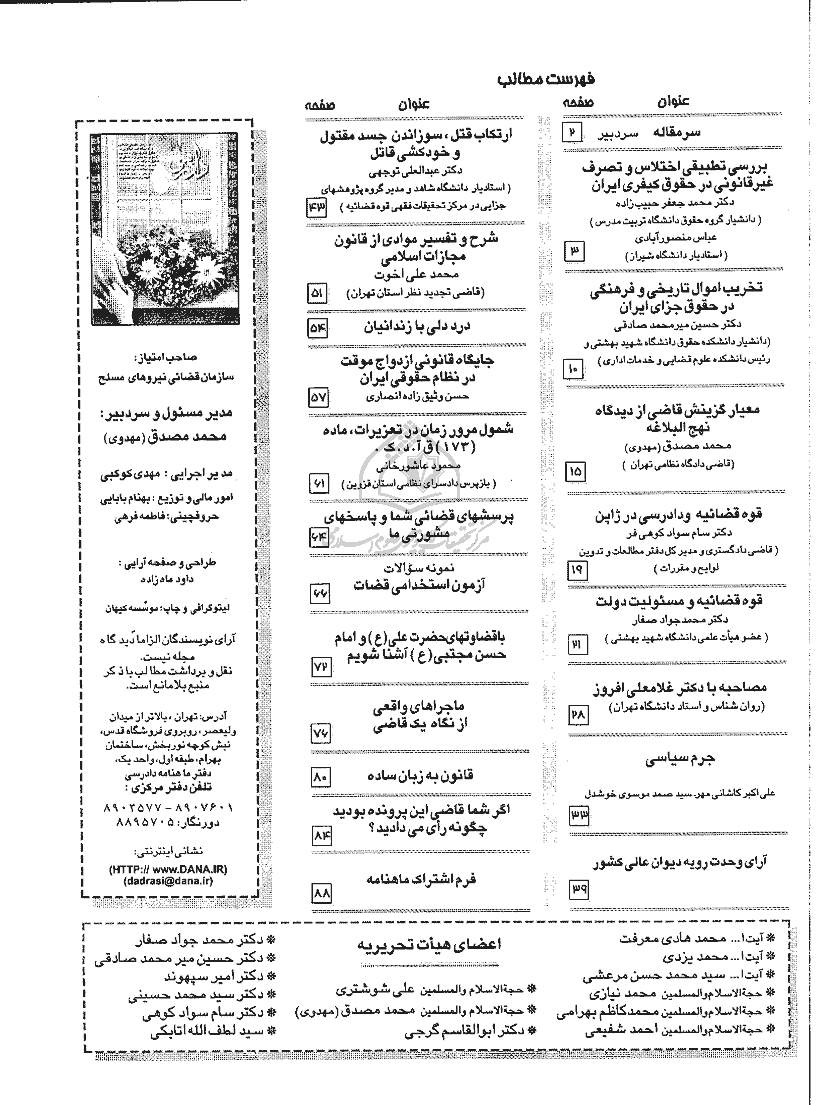 فهرست مطالب
عنوان صفحه
سرمقاله سردبیر ۲
بررسی تطبیقی اختلاس و تصرف
غیرقانونی در حقوق کیفری ایران
دکتر محمد جعفر حبیب زاده
( دانشیار گروه حقوق دانشگاه تربیت مدرس )
عباس منصورآبادی
( استادیار دانشگاه شیراز) ۳
تخریب اموال تاریخی و فرهنگی
در حقوق جزای ایران
دکتر حسین میرمحمد صادقی
(دانشیار دانشکده حقوق دانشگاه شهید بهشتی و
رئیس دانشکده علوم قضایی و خدمات اداری ) ۱۰
معیار گزینش قاضی از دیدگاه
نهج البلاغه
محمد مصدق (مهدوی)
(قاضی دادگاه نظامی تهران ) ۱۵
قوه قضائیه ودادرسی در ژاپن
دکتر سام سواد کوهی فر
( قاضی دادگستری و مدیر کل دفتر مطالعات و تدوین
لوایح و مقررات ) ۱۹
قوه قضائیه و مسئولیت دولت
دکتر محمدجواد صفار
( عضو هیأت علمی دانشگاه شهید بهشتی ) ۲۱
مصاحبه با دکتر غلامعلی افروز
(روان شناس و استاد دانشگاه تهران) ۲۸
جرم سیاسی
علی اکبر کاشانی مهر، سید صمد موسوی خوشدل
۳۳
آرای وحدت رویه دیوان عالی کشور
۳۹
عنوان صفحه
ارتکاب قتل ، سوزاندن جسد مقتول
و خودکشی قاتل
دکتر عبدالعلی توجهی
( استادیار دانشگاه شاهد و مدیر گروه پژوهشهای
جزایی در مرکز تحقیقات فقهی قوه قضائیه ) ۴۳
شرح و تفسیر موادی از قانون
مجازات اسلامی
محمد علی اخوت
(قاضی تجدید نظر استان تهران) ۵۱
درد دلی با زندانیان ۵۴
جایگاه قانونی ازدواج موقت
در نظام حقوقی ایران
حسن وثیق زاده انصاری ۵۷
شمول مرور زمان در تعزیرات، ماده
(۱۷۳) ق آ. د. ک.
محمود عاشورخانی
( بازپرس دادسرای نظامی استان قزوین ) ۶۱
پرسشهای قضائی شما و پاسخهای
مشورتی ما ۶۴
نمونه سؤالات
آزمون استخدامی قضات ۶۶
باقضاوتهای حضرت علی (ع) و امام
حسن مجتبی (ع ) آشنا شویم ۷۲
ماجراهای واقعی
از نگاه یک قاضی ۷۶
قانون به زبان ساده ۸۰
اگر شما قاضی این پرونده بودید
چگونه رأی می دادید؟ ۸۴
فرم اشتراک ماهنامه
۸۸
دادرسی
صاحب امتیاز:
سازمان قضائی نیروهای مسلح
مدیر مسئول و سردبیر:
محمد مصدق (مهدوی)
مدیر اجرایی : مهدی کوکبی
امور مالی و توزیع : بهنام بابایی
حروفچینی: فاطمه فرهی
طراحی و صفحه آرایی :
داود ماه زاده
لیتوگرافی و چاپ: مؤسسه کیهان
آرای نویسندگان الزاما دید گاه
مجله نیست.
نقل و برداشت مطالب با ذکر
منبع بلامانع است.
آدرس: تهران ، بالاتر از میدان
ولیعصر، روبروی فروشگاه قدس،
نبش کوچه نوربخش، ساختمان
بهرام، طبقه اول، واحد یک،
دفتر ماهنامه دادرسی
تلفن دفتر مرکزی :
۸۹۰۷۶۰۱ – ۸۹۰۲۵۷۷
دورنگار: ۸۸۹۵۷۰۵
نشانی اینترنتی:
(HTTP:// www.DANA.IR)
(dadrasi@dana.ir)
اعضای هیأت تحریریه
* آیت ا... محمد هادی معرفت
* آیت ا... محمد یزدی
* آیت ا... سید محمد حسن مرعشی
* حجةالاسلام والمسلمین محمد نیازی
* حجةالاسلام والمسلمین محمدکاظم بهرامی
* حجةالاسلام والمسلمین احمد شفیعی
* حجةالاسلام والمسلمین علی شوشتری
* حجةالاسلام والمسلمین محمد مصدق (مهدوی)
* دکتر ابوالقاسم گرجی
* دکتر محمد جواد صفار
* دکتر حسین میر محمد صادقی
* دکتر امیر سپهوند
* دکتر سید محمد حسینی
* دکتر سام سواد کوهی
* سید لطف الله اتابکی